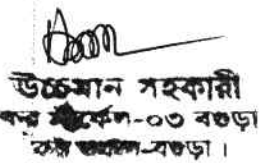 উচ্চমান সহকারী
কর সার্কেল-০৩ বগুড়া
কর অঞ্চল-বগুড়া।